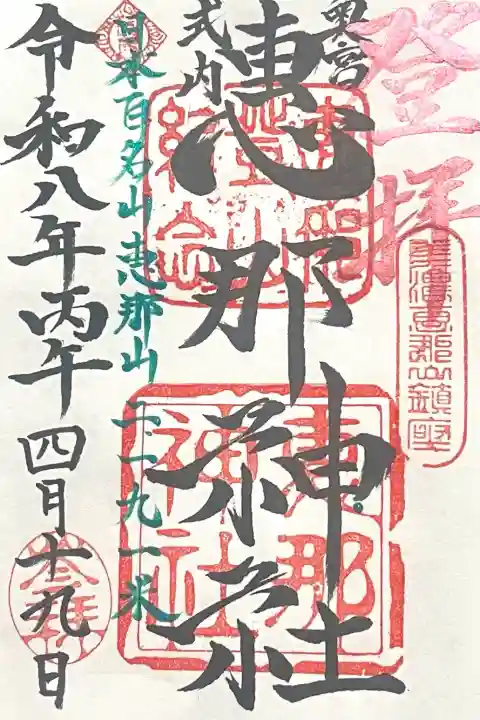 登拝
美濃惠那山鎮座
奥宮
式内
惠那神社
惠那神社
日本百名山恵那山二一九一米
令和八年丙午四月十九日
参拝